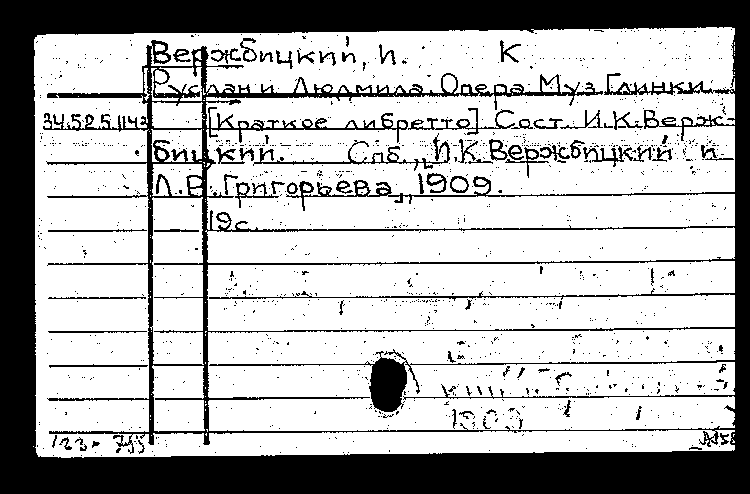 Вержбицкий, И. К
Руслан и Людмила. Опера. Муз. Глинки.
34.52.5.1143 [Краткое либретто] Сост. И.К. Верж-
бицкий. Спб., „И.К. Вержбицкий и
Л.В. Григорьева", 1909.
19с.
1909